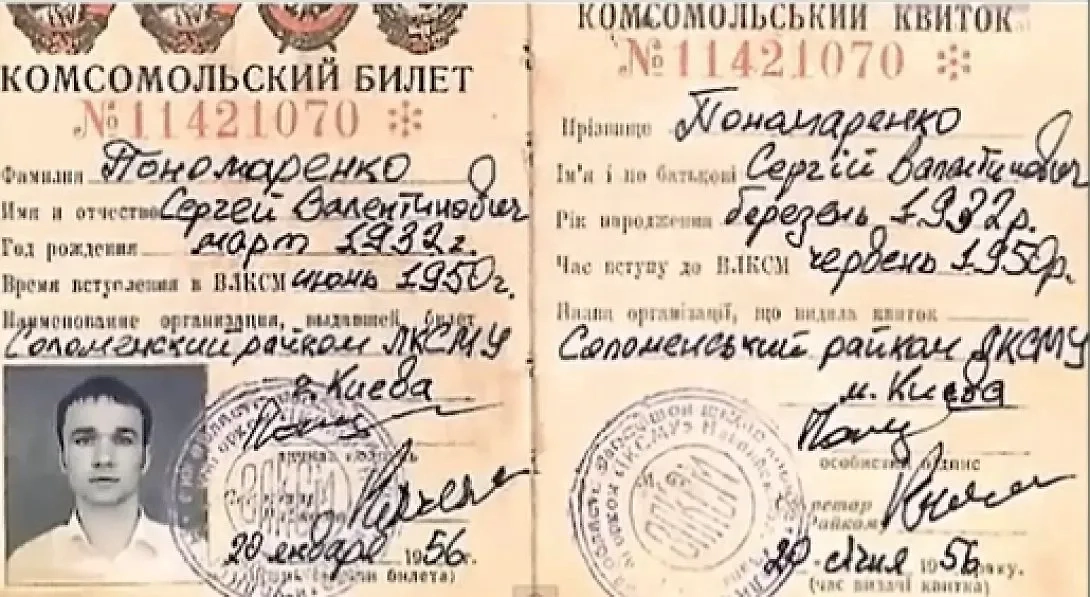 КОМСОМОЛЬСКИЙ БИЛЕТ
№11421070
Фамилия Пономаренко
Имя и отчество Сергей Валентинович
Год рождения март 1932 г.
Время вступления в ВЛКСМ июнь 1950 г.
Наименование организации, выдавшей билет
Соломенский райком ЛКСМУ
г. Киева
20 января 1956 г.
билета)
КОМСОМОЛЬСЬКИЙ КВИТОК
№11421070
Прізвище Пономаренко
Ім'я і по батькові Сергій Валентинович
Рік народження березень 1932 р.
Час вступу до ВЛКСМ червень 1950 р.
Назва організації, що видала квиток
Соломенський райком ЛКСМУ
м. Києва
особистий підпис
Секретар
Райкому
20 січня 1956 року.
(час видачі квитка)